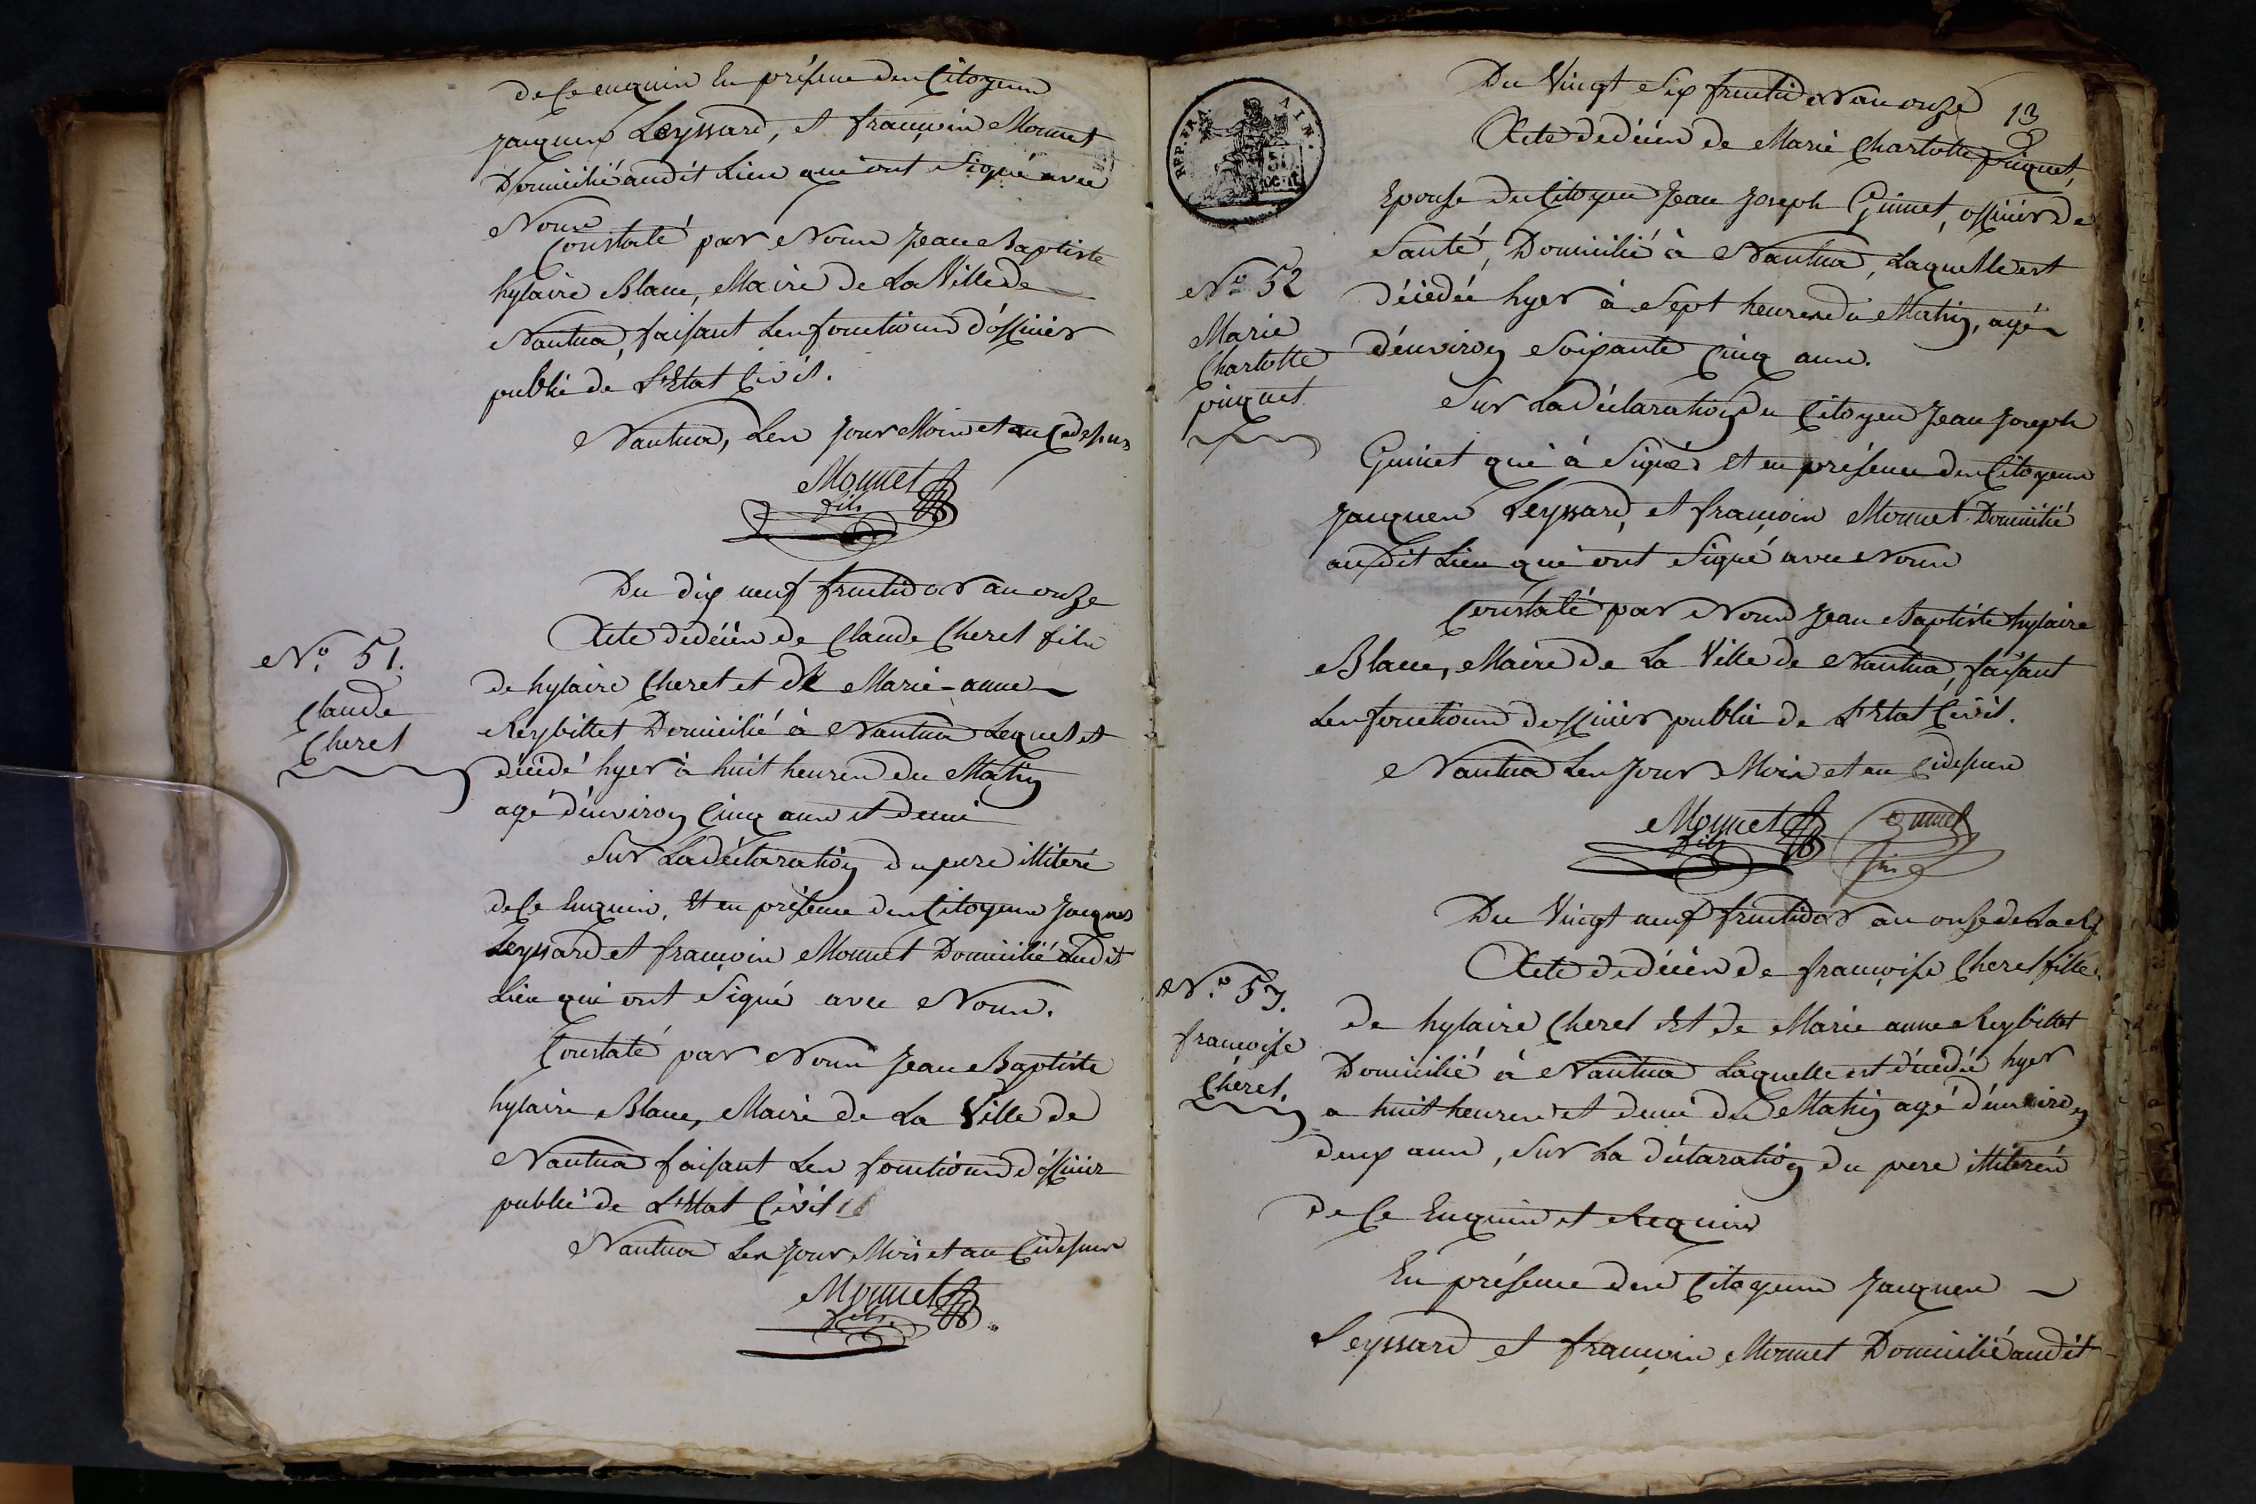 de ce enquin En présence des Citoyens
Jacques Leyssard, et françois Monnet
Domicilié audit Lieu qui ont Signé avec
Nous
Constaté par Nous Jean Baptiste
hylaire Blanc, Maire de La Ville de
Nantua, faisant Les fonctions d'officier
public de L'Etat Civil.
Nantua, Les Jour Mois et an Cidessus
Monnet
fils
Du dix neuf fructidor an onze
Acte de décès de Claude Cheret fils
N.º 51.
Claude
Cheret
de hylaire Cheret et de Marie-anne
Reybillet Domicilié à Nantua Lequel est
décédé hyer à huit heures du Matin
agé d'environ Cinq ans et demi
Sur La déclaration du pere illiteré
de Ce Enquin, Et en présence des Citoyens Jacques
Leyssard et françois Monnet Domicilié audit
Lieu qui ont Signé avec Nous.
Constaté par Nous Jean Baptiste
hylaire Blanc, Maire de La Ville de
Nantua faisant Les fonctions d'officier
public de L'Etat Civil
Nantua Les Jour Mois et an Cidessus
Monnet
fils
REP. FRA.
AIN.
13
Du Vingt Six fructidor an onze
Acte de décès de Marie Charlotte picquet,
N.º 52
Marie
Charlotte
picquet
Epouse du Citoyen Jean Joseph Guinet, officier de
Santé, Domicilié à Nantua, Laquelle est
décédée hyer à Sept heures du Matin, agée
d'environ Soixante Cinq ans.
Sur La déclaration du Citoyen Jean Joseph
Guinet qui à Signé Et en présence des Citoyens
Jacques Leyssard, et françois Monnet Domicilié
audit Lieu qui ont Signé avec Nous
Constaté par Nous Jean Baptiste hylaire
Blanc, Maire de La Ville de Nantua, faisant
Les fonctions d'officier public de L'Etat Civil.
Nantua Les Jour Mois et an Cidessus
Monnet
fils
Guinet
Du Vingt neuf fructidor an onze de La R
Acte de décès de françoise Cheret fille
N.º 53.
françoise
Cheret.
de hylaire Cheret Et de Marie anne Reybillet
Domicilié à Nantua Laquelle est décédée hyer
a huit heures et demi du Matin agé d'environ
deux ans, Sur La déclaration du pere illiteré
de Ce Enquin et Requis
En présence des Citoyens Jacques
Leyssard et françois Monnet Domicilié audit